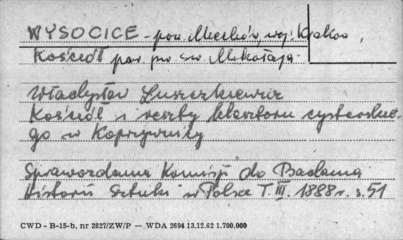 WYSOCICE - pow. Miechów, woj. Kraków,
Kościół par. pw św. Mikołaja
Władysław Łuszczkiewicz
Kościół i reszty klasztoru cysterskie-
go w Koprzywnicy
Sprawozdania Komisji do Badania
Historii Sztuki w Polsce T. III. 1888 r. s. 51
CWD - B-15-b, nr 2827/ZW/P — WDA 2694 13.12.62 1.700.000